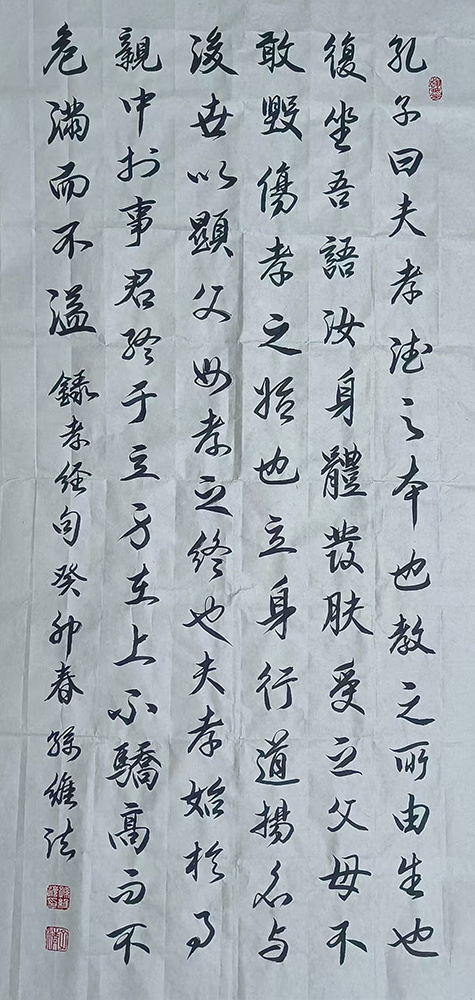 孔子曰夫孝德之本也教之所由生也
復坐吾語汝身體發肤受之父母不
敢毀傷孝之始也立身行道揚名与
後世以顯父母孝之終也夫孝始於事
親中於事君終于立身在上不驕高而不
危滿而不溢 錄孝经句癸卯春孫維法